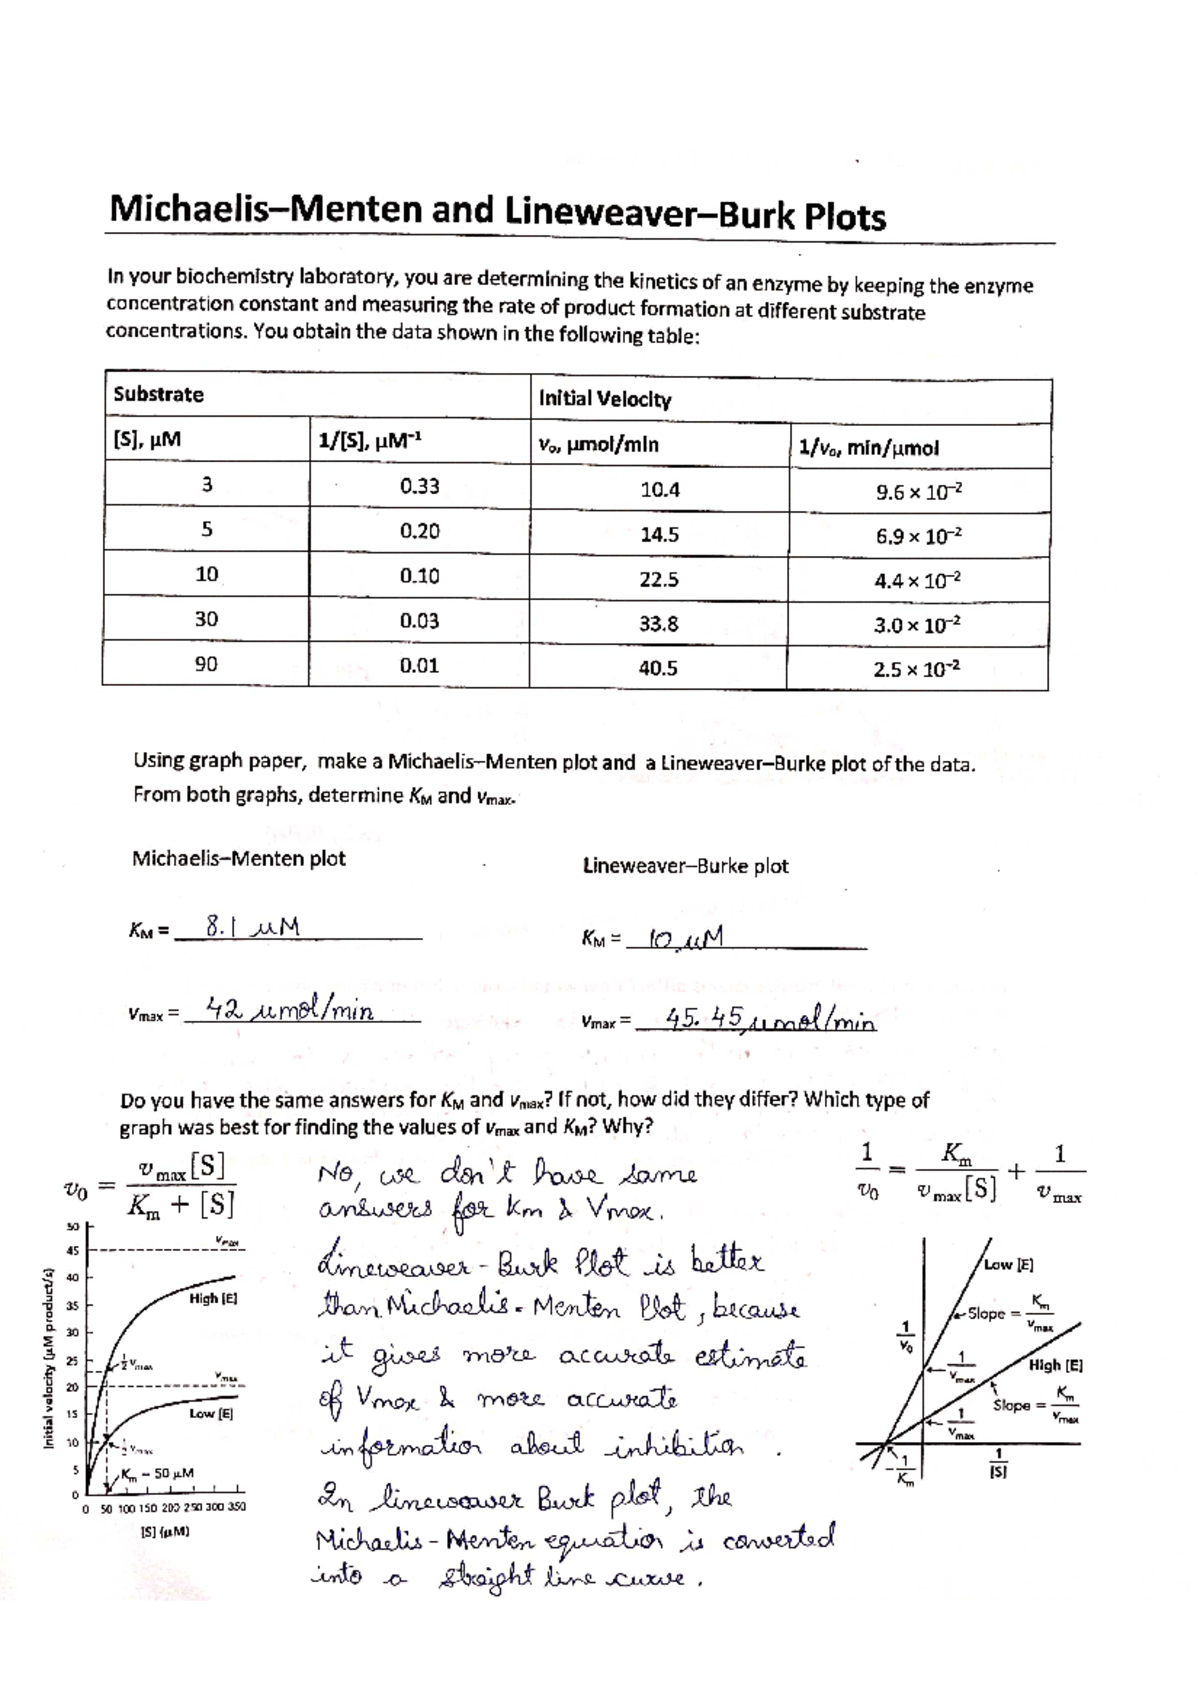 Michaelis–Menten and Lineweaver–Burk Plots
In your biochemistry laboratory, you are determining the kinetics of an enzyme by keeping the enzyme
concentration constant and measuring the rate of product formation at different substrate
concentrations. You obtain the data shown in the following table:
Substrate Initial Velocity
[S], µM 1/[S], µM⁻¹ v₀, µmol/min 1/v₀, min/µmol
3 0.33 10.4 9.6 × 10⁻²
5 0.20 14.5 6.9 × 10⁻²
10 0.10 22.5 4.4 × 10⁻²
30 0.03 33.8 3.0 × 10⁻²
90 0.01 40.5 2.5 × 10⁻²
Using graph paper, make a Michaelis–Menten plot and a Lineweaver–Burke plot of the data.
From both graphs, determine KM and vmax.
Michaelis–Menten plot
Lineweaver–Burke plot
KM = 8.1 µM
KM = 10 µM
vmax = 42 µmol/min
vmax = 45.45 µmol/min
Do you have the same answers for KM and vmax? If not, how did they differ? Which type of
graph was best for finding the values of vmax and KM? Why?
v₀ = vmax[S] / Km + [S]
1/v₀ = Km/vmax[S] + 1/vmax
No, we don't have same
answers for Km & Vmax.
Lineweaver - Burk Plot is better
than Michaelis - Menten Plot, because
it gives more accurate estimate
of Vmax & more accurate
information about inhibition.
In lineweaver Burk plot, the
Michaelis - Menten equation is converted
into a straight line curve.
Initial velocity (µM product/s)
50
45
40
35
30
25
20
15
10
5
0
Vmax
High [E]
½Vmax
Vmax
Low [E]
½Vmax
Km – 50 µM
0 50 100 150 200 250 300 350
[S] (µM)
Low [E]
Slope = Km/Vmax
1/V₀
1/Vmax
High [E]
Slope = Km/Vmax
1/Vmax
-1/Km
1/[S]